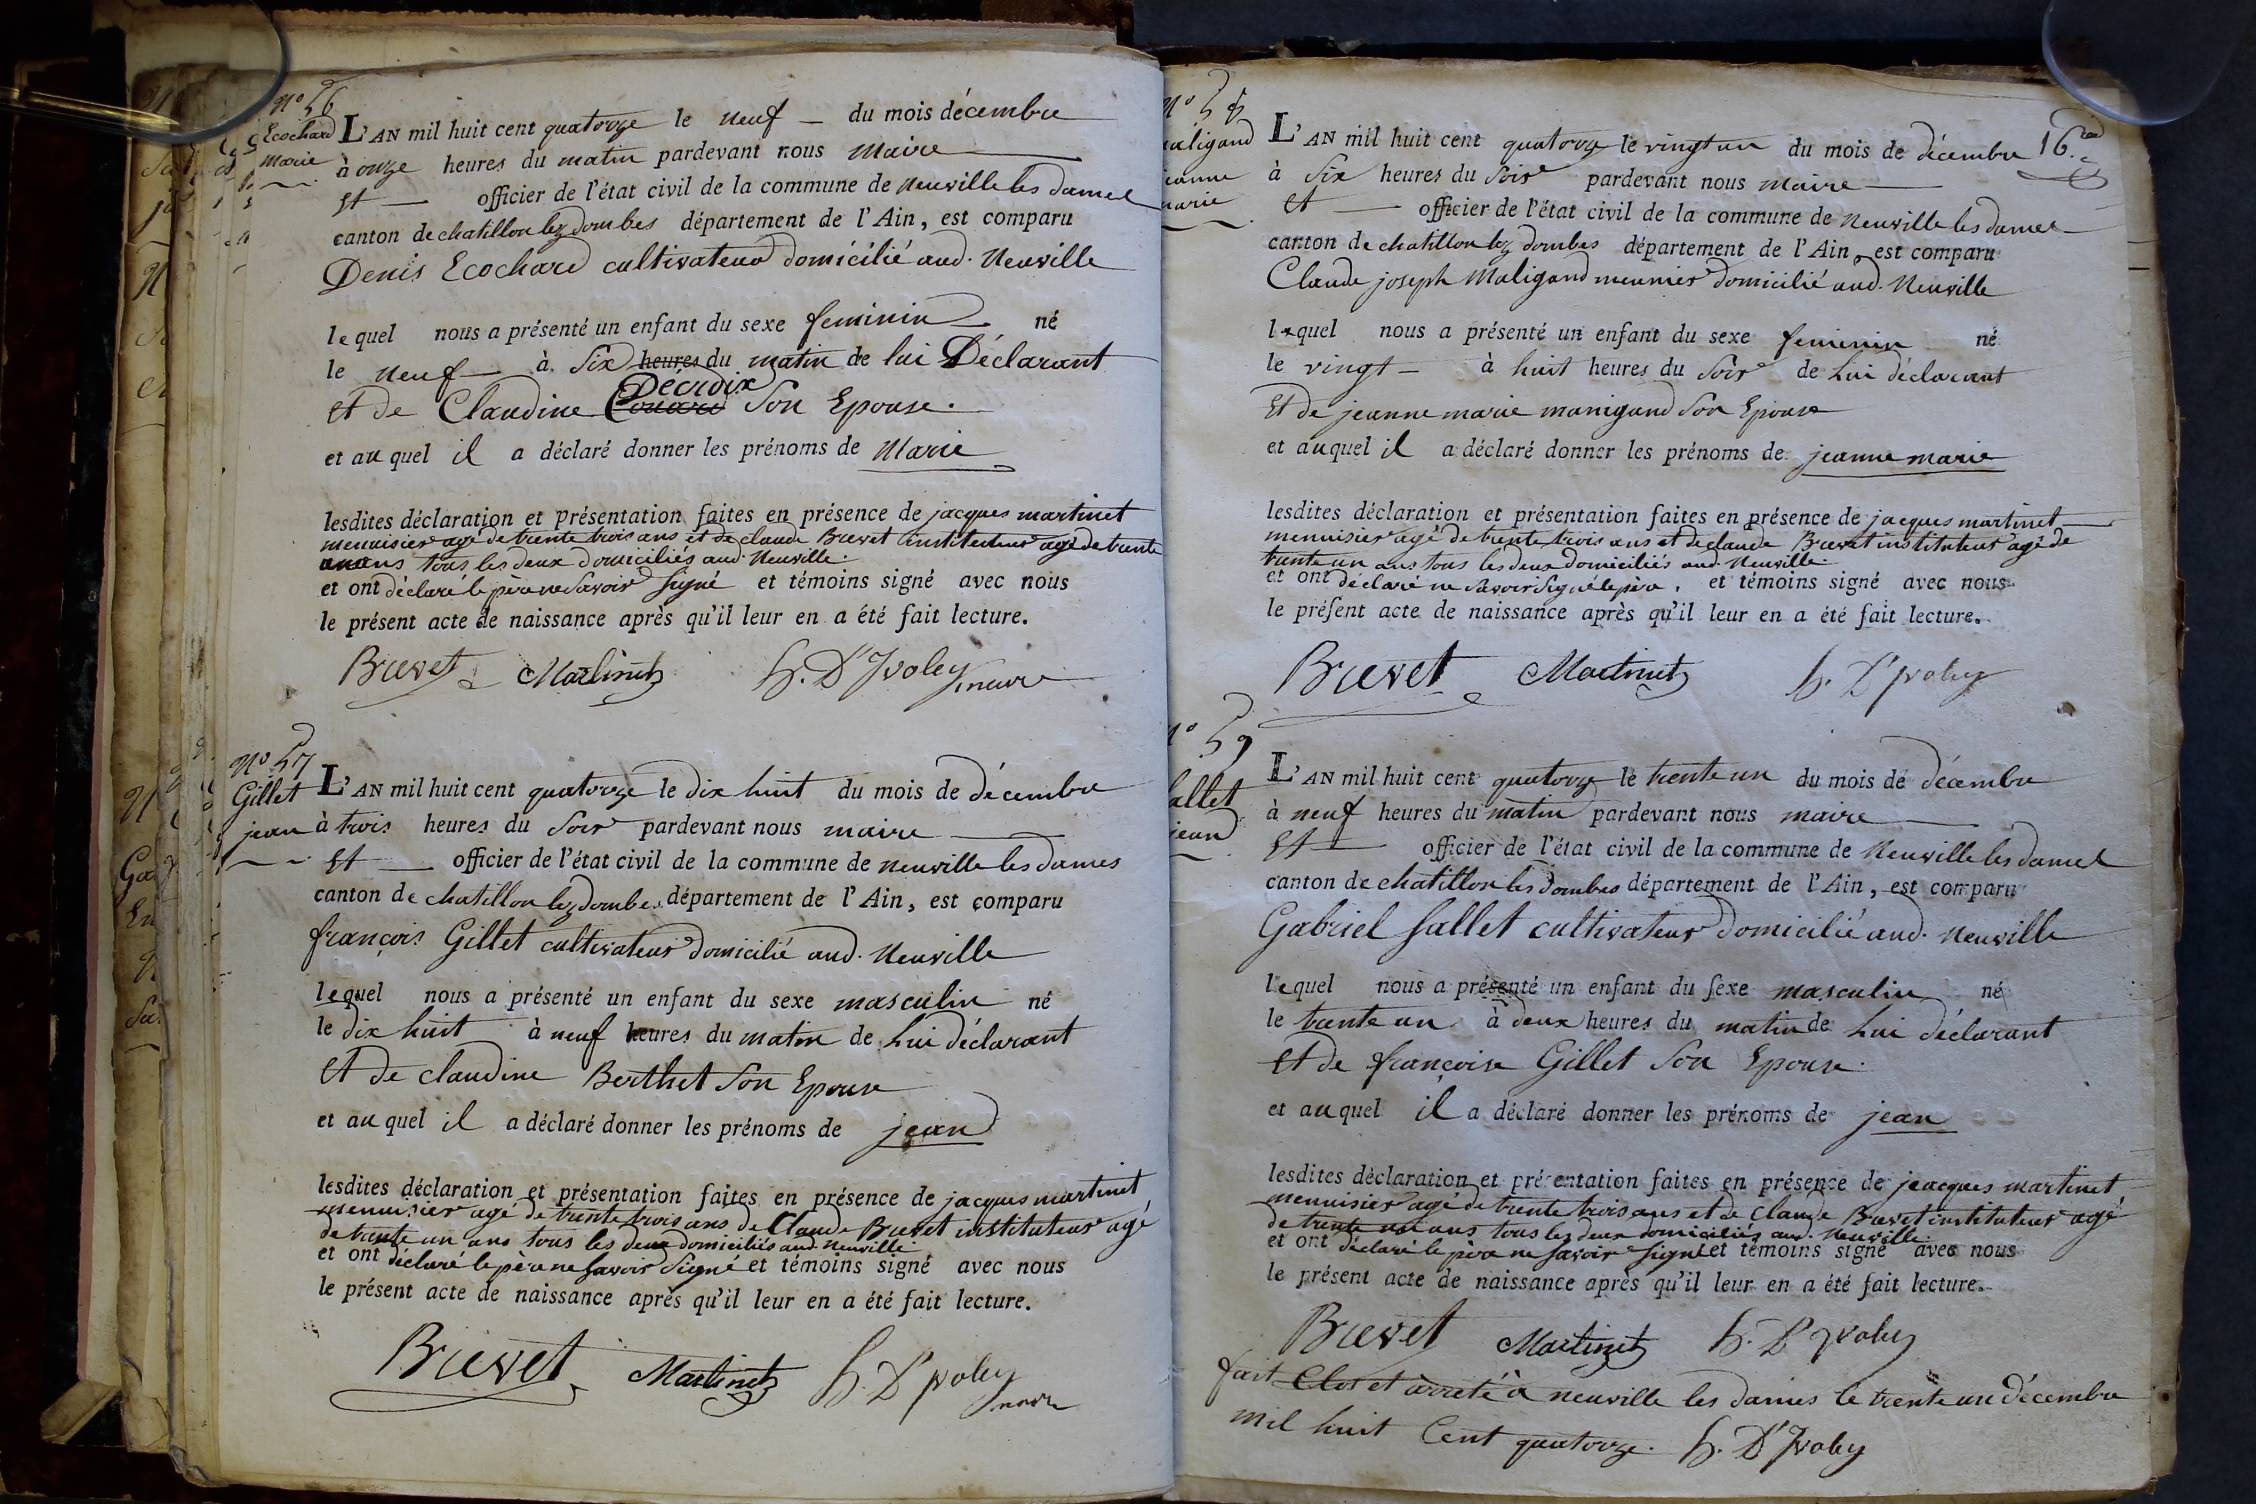 No 56
Ecochard
Marie
L'AN mil huit cent quatorze le neuf — du mois décembre
à onze heures du matin pardevant nous Maire
Et — officier de l'état civil de la commune de Neuville les Dames
canton de chatillon lez dombes département de l'Ain, est comparu
Denis Ecochard cultivateur domicilié aud. Neuville
lequel nous a présenté un enfant du sexe feminin né
le neuf à Six heures du matin de lui Déclarant
Décroix
et de Claudine Couard Son Epouse.
et au quel il a déclaré donner les prénoms de Marie
lesdites déclaration et présentation faites en présence de jacques martinet
menuisier agé de trente trois ans et de claude Brevet instituteur agé de trente
un ans tous les deux domiciliés aud. Neuville.
et ont déclaré le père ne Savoir Signé et témoins signé avec nous
le présent acte de naissance après qu'il leur en a été fait lecture.
Brevet Martinet h. D'Ivoley maire
No 57
Gillet
jean
L'AN mil huit cent quatorze le dix huit du mois de décembre
à trois heures du Soir pardevant nous maire
Et — officier de l'état civil de la commune de neuville les dames
canton de chatillon lez dombes département de l'Ain, est comparu
françois Gillet cultivateur domicilié aud. Neuville
lequel nous a présenté un enfant du sexe masculin né
le dix huit à neuf heures du matin de Lui déclarant
Et de claudine Berthet Son Epouse
et au quel il a déclaré donner les prénoms de jean
lesdites déclaration et présentation faites en présence de jacques martinet
menuisier agé de trente trois ans de Claude Brevet instituteur agé
de trente un ans tous les deux domiciliés aud. Neuville
et ont déclaré le père ne Savoir Signé et témoins signé avec nous
le présent acte de naissance après qu'il leur en a été fait lecture.
Brevet Martinet h. D'Ivoley maire
No 58
maligand
jeanne
marie
16.
L'AN mil huit cent quatorze le vingt un du mois de décembre
à Six heures du Soir pardevant nous maire
Et — officier de l'état civil de la commune de Neuville les dames
canton de chatillon lez dombes département de l'Ain, est comparu
Claude joseph Maligand meunier domicilié aud. Neuville
lequel nous a présenté un enfant du sexe feminin né
le vingt — à huit heures du Soir de Lui déclarant
Et de jeanne marie manigand Son Epouse
et auquel il a déclaré donner les prénoms de jeanne marie
lesdites déclaration et présentation faites en présence de jacques martinet
menuisier agé de trente trois ans et de claude Brevet instituteur agé de
trente un ans tous les deux domiciliés aud. Neuville.
et ont déclaré ne Savoir Signé le père, et témoins signé avec nous
le présent acte de naissance après qu'il leur en a été fait lecture.
Brevet Martinet h. D'Ivoley
No 59
Sallet
jean
L'AN mil huit cent quatorze le trente un du mois de décembre
à neuf heures du matin pardevant nous maire
Et — officier de l'état civil de la commune de Neuville les dames
canton de chatillon les dombes département de l'Ain, est comparu
Gabriel Sallet cultivateur domicilié aud. Neuville
lequel nous a présenté un enfant du sexe masculin né
le trente un à deux heures du matin de Lui déclarant
et de françoise Gillet Son Epouse.
et auquel il a déclaré donner les prénoms de jean
lesdites déclaration et présentation faites en présence de jeacques martinet
menuisier agé de trente trois ans et de claude Brevet instituteur agé
de trente un ans tous les deux domiciliés aud. Neuville.
et ont déclaré le père ne Savoir Signé et témoins signé avec nous
le présent acte de naissance après qu'il leur en a été fait lecture.
Brevet Martinet h. D'Ivoley
fait Clos et arreté à neuville les dames le trente un décembre
mil huit Cent quatorze. h. D'Ivoley